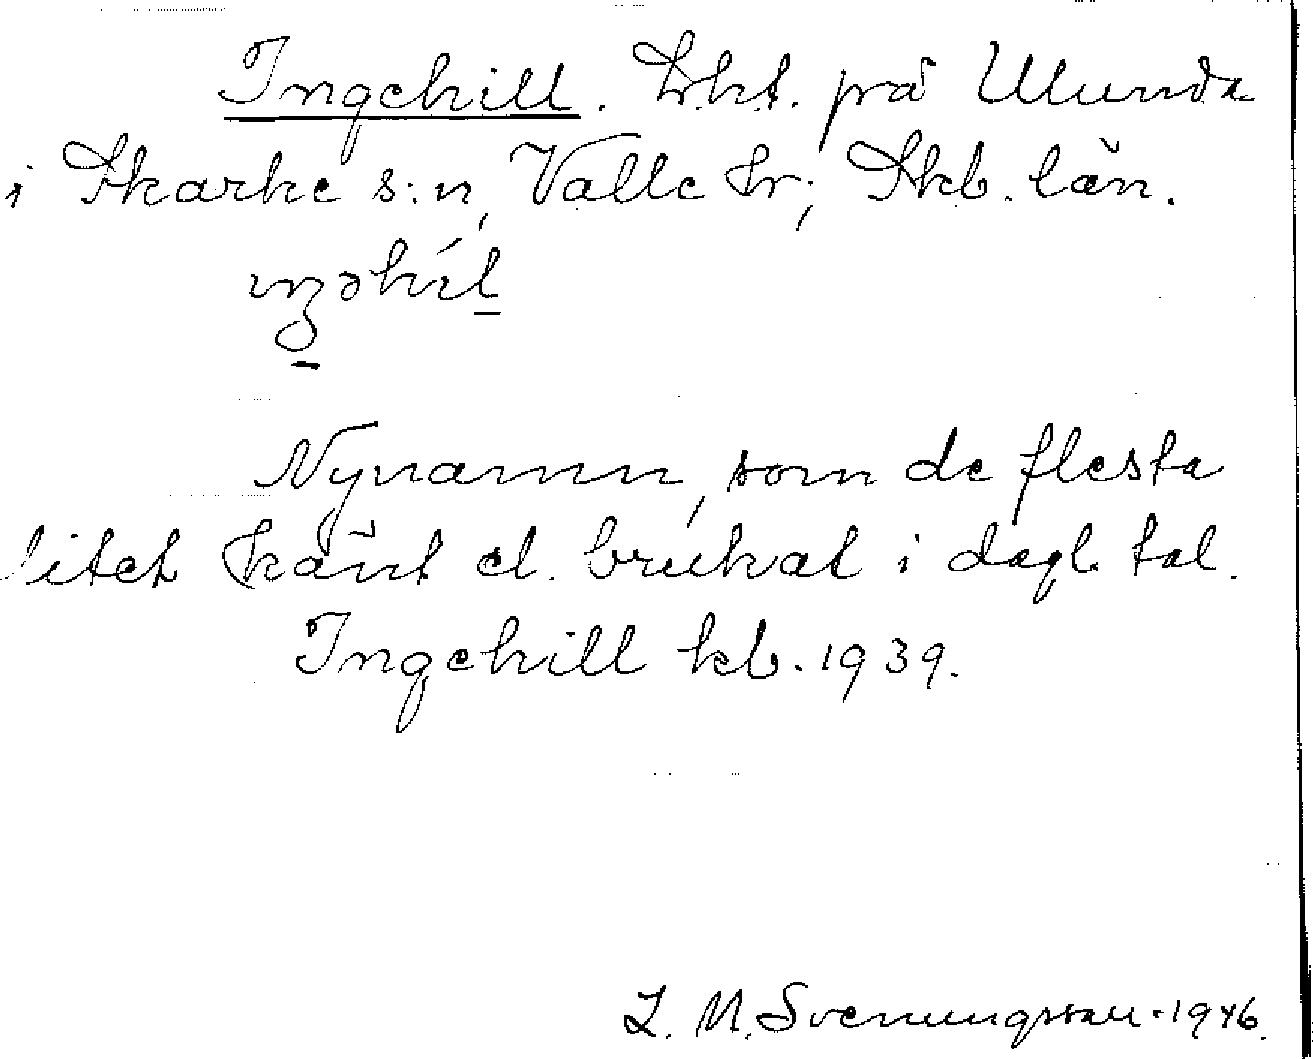 Ingehill. Lht. på Ulunda
i Skarke s:n, Valle hr; Skb. län.
iŋəhíl
Nynamn, som de flesta
litet känt el. brukat i dagl. tal.
Ingehill kb. 1939.
L. M. Svenungsson. 1946.